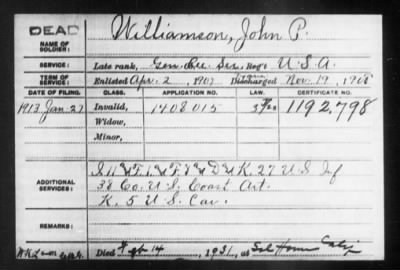 DEAD
NAME OF SOLDIER: Williamson, John P.
SERVICE: Late rank, Gen. Rec. Ser. Reg't U.S.A.
TERM OF SERVICE: Enlisted Apr. 2, 1907 Discharged Nov. 19, 1908
DATE OF FILING. CLASS. APPLICATION NO. LAW. CERTIFICATE NO.
1913 Jan-27 Invalid, 1408015 1192.798
Widow,
Minor,
ADDITIONAL SERVICES: K. 27 U S Inf
38 Co. U.S. Coast Art.
K. 5 U S Cav.
REMARKS:
Died Feb 14, 1931, at Sol Home Calif